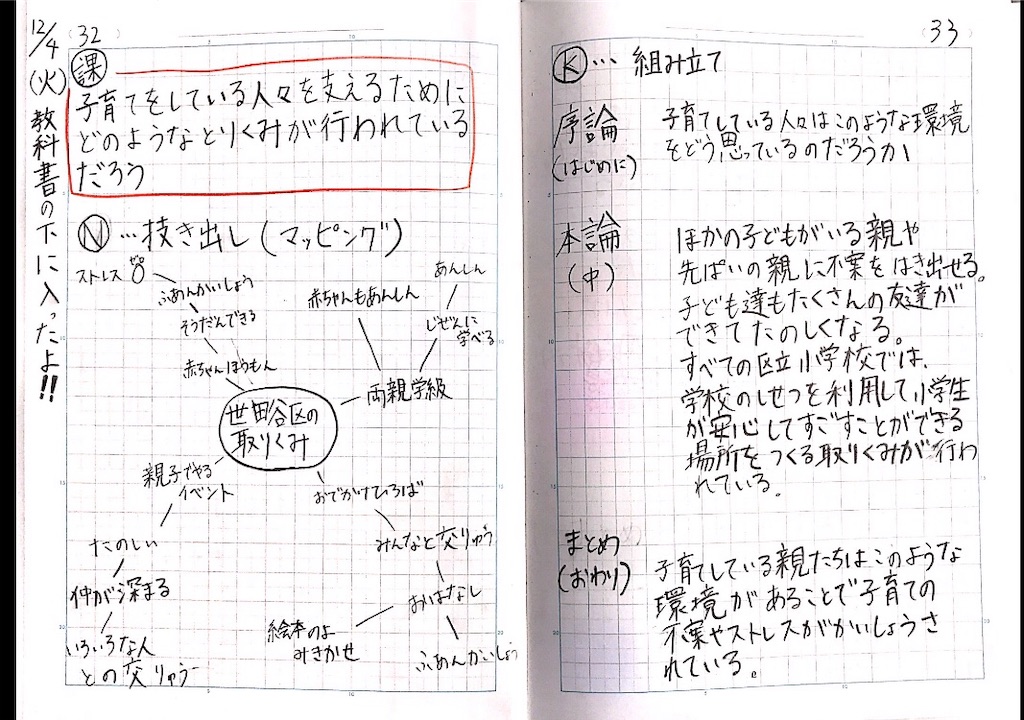 12/4(火) 教科書の下に入ったよ!!
32
課
子育てをしている人々を支えるために
どのようなとりくみが行われている
だろう
N…抜き出し(マッピング)
ストレス
ふあんがいしょう
そうだんできる
赤ちゃんほうもん
赤ちゃんもあんしん
あんしん
じぜんに
学べる
両親学級
世田谷区の
取りくみ
親子でやる
イベント
たのしい
仲が深まる
いろいろな人
との交りゅう
おでかけひろば
みんなと交りゅう
おはなし
絵本のよ
みきかせ
ふあんかいしょう
33
K…組み立て
序論
(はじめに)
子育てしている人々はこのような環境
をどう思っているのだろうか
本論
(中)
ほかの子どもがいる親や
先ぱいの親に不案をはき出せる。
子ども達もたくさんの友達が
できてたのしくなる。
すべての区立小学校では、
学校のしせつを利用して小学生
が安心してすごすことができる
場所をつくる取りくみが行わ
れている。
まとめ
(おわり)
子育てしている親たちはこのような
環境があることで子育ての
不案やストレスがかいしょうさ
れている。